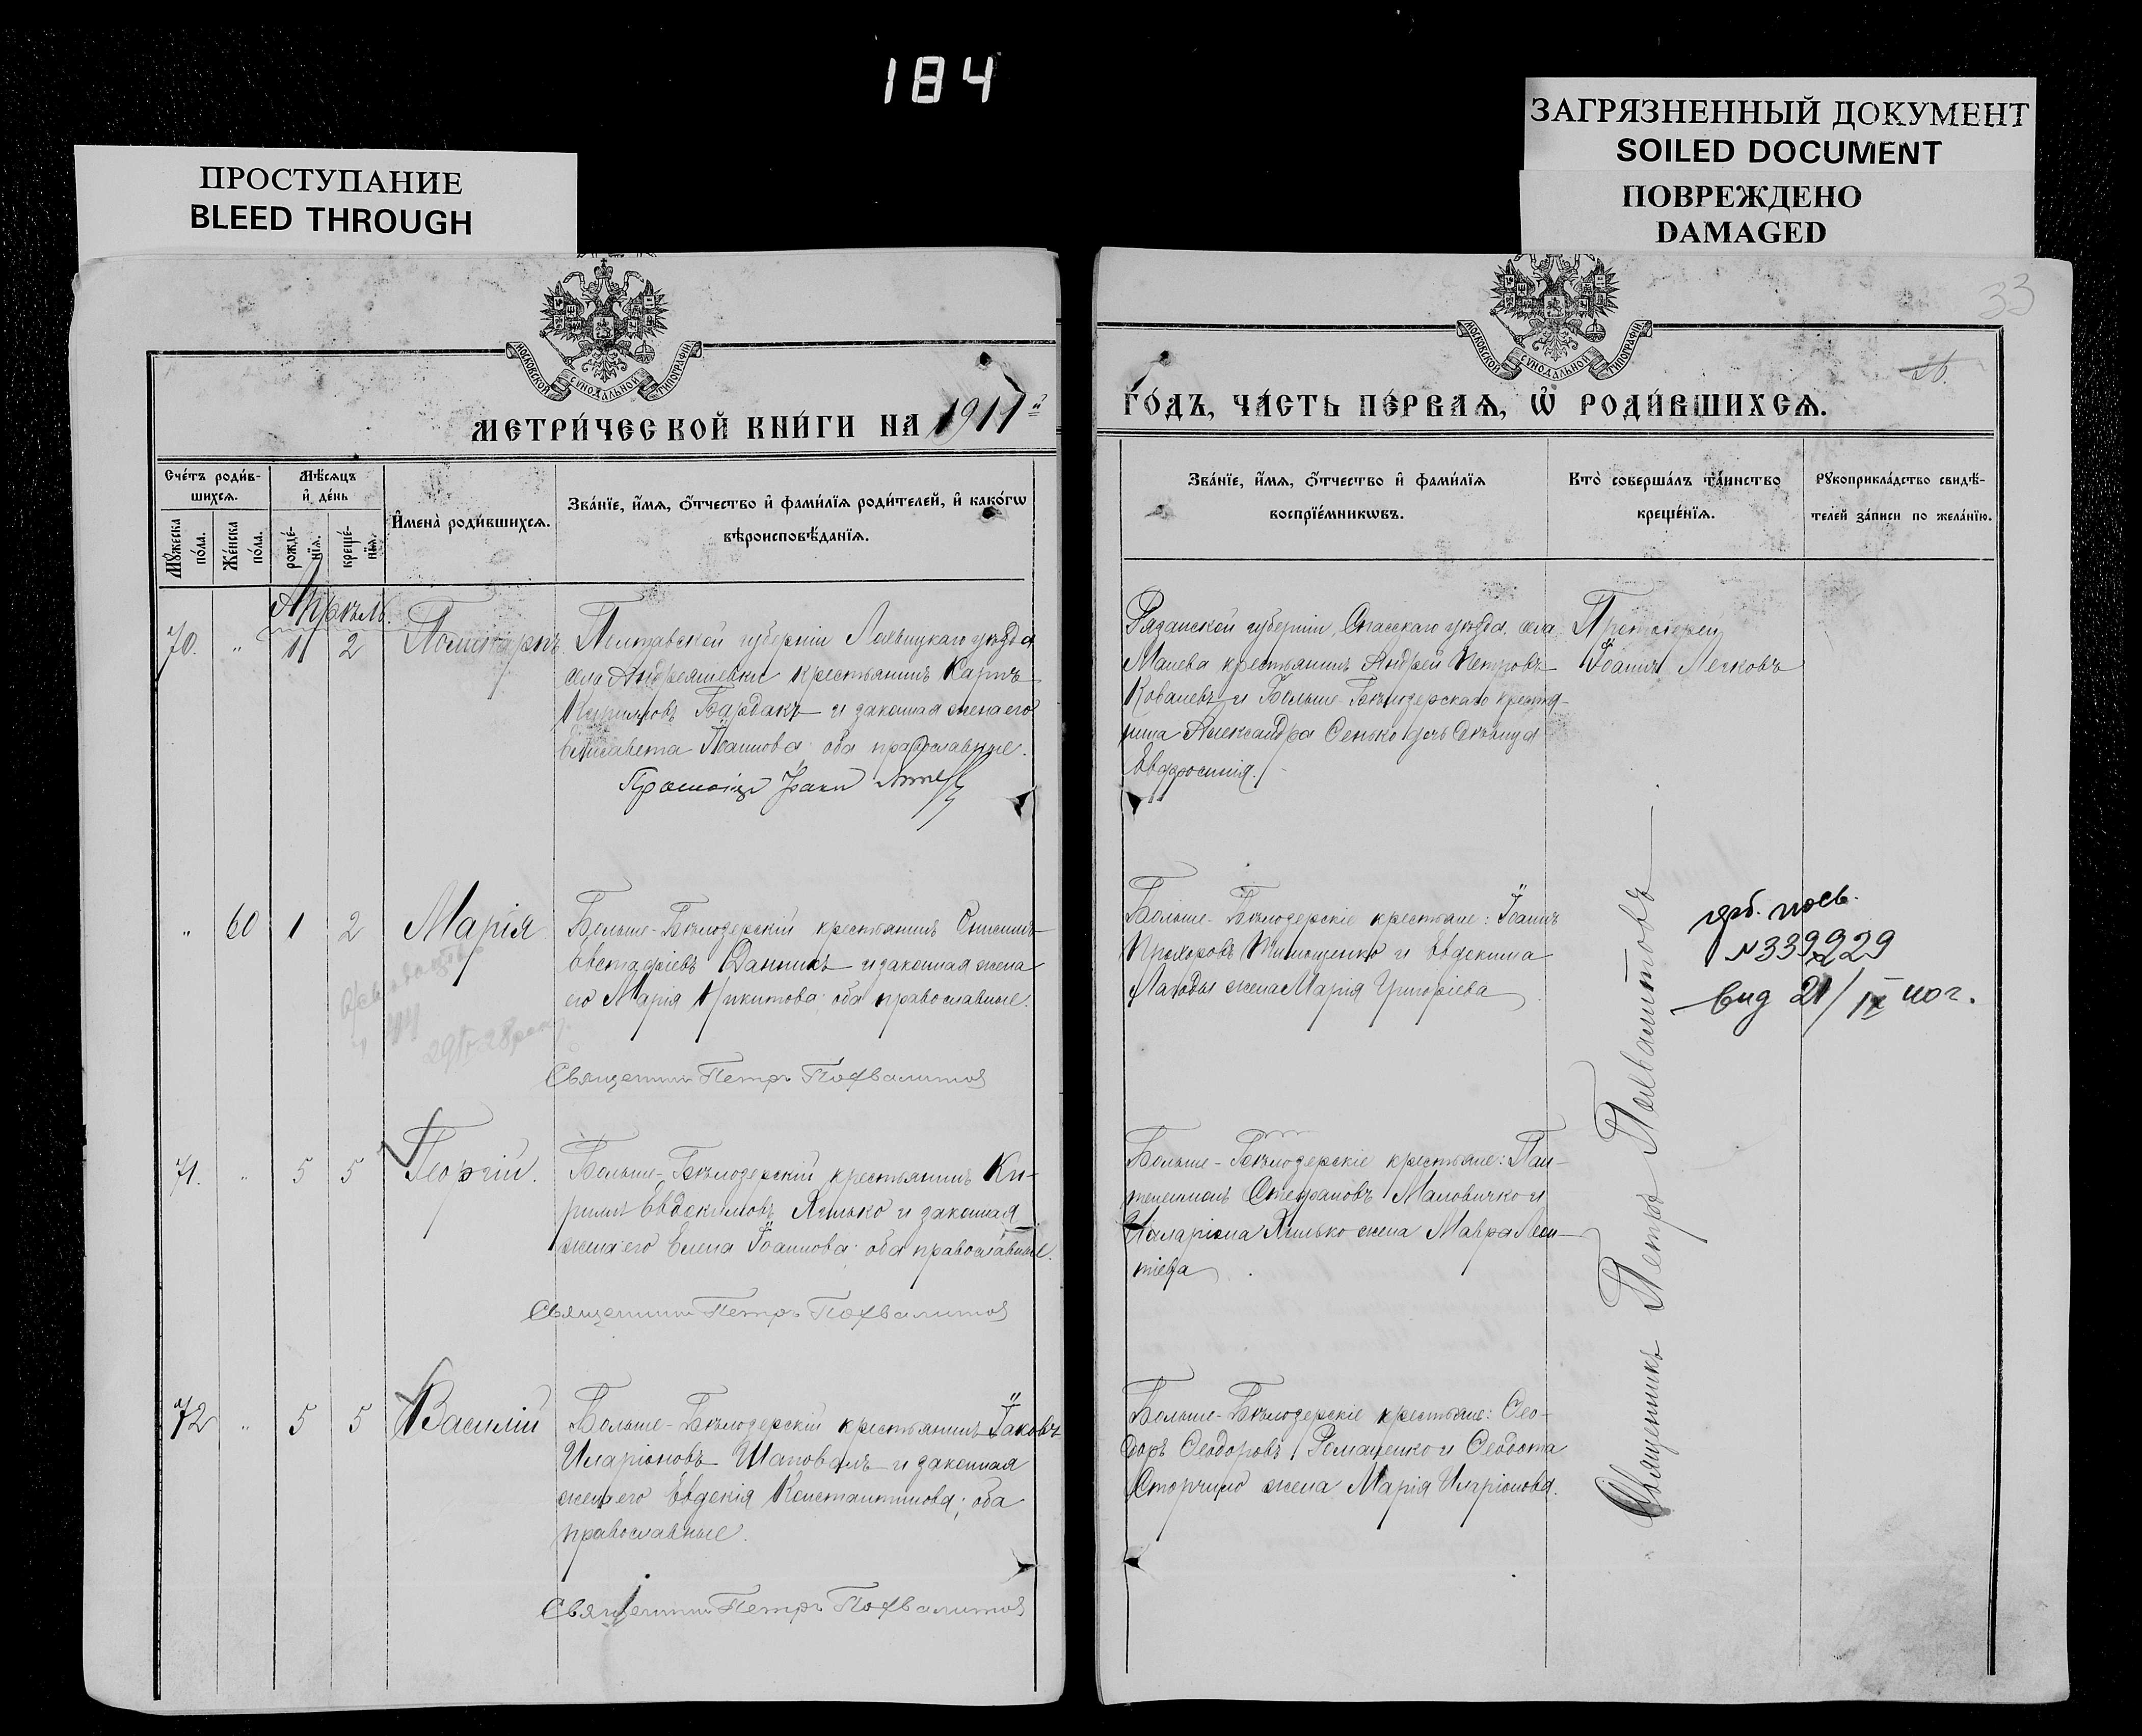 184
ПРОСТУПАНИЕ
BLEED THROUGH
ЗАГРЯЗНЕННЫЙ ДОКУМЕНТ
SOILED DOCUMENT
ПОВРЕЖДЕНО
DAMAGED
33
26.
МОСКОВСКОЙ СУНОДАЛЬНОЙ ТИПОГРАФІИ
МОСКОВСКОЙ СУНОДАЛЬНОЙ ТИПОГРАФІИ
МЕТРИ́ЧЕСКОЙ КНИ́ГИ НА 1911й
ГО́ДЪ, ЧА́СТЬ ПЕ́РВАѦ, Ѡ҆ РОДИ́ВШИХСѦ.
Счетъ роди́вшихсѧ.
Мꙋжеска по́ла.
Же́нска по́ла.
Мѣ́сѧцъ и҆ де́нь
рожде́нїѧ.
креще́нїѧ.
И҆мена̀ роди́вшихсѧ.
Зва́нїе, и҆́мѧ, ѻ҆́тчество и҆ фами́лїѧ роди́телей, и҆ како́гѡ
вѣроисповѣ́данїѧ.
Зва́нїе, и҆́мѧ, ѻ҆́тчество и҆ фами́лїѧ
воспрїе́мникѡвъ.
Кто̀ соверша́лъ та́инство
креще́нїѧ.
Рꙋкоприкла́дство свидѣ́-
телей за́писи по жела́нїю.
Апрѣль.
70. " 1 2 Поликарпъ
Полтавской губерніи Лохвицкаго уѣзда
села Андреяшевки крестьянинъ Карпъ
Бардакъ и законная жена его
Елисавета Іоаннова; оба православные.
Рязанской губерніи, Спасскаго уѣзда, села
крестьянинъ Андрей Петровъ
Ковалевъ и Больше-Бѣлозерскаго крестья-
нина Александра Сенько дочь дѣвица
Евфросинія.
Протоіерей
Іоаннъ Легковъ
" 60 1 2 Марія
Больше-Бѣлозерскій крестьянинъ Онисимъ
Евстафіевъ Данникъ и законная жена
его Марія Никитова; оба православные.
Священникъ Петръ Похвалитовъ
Больше-Бѣлозерскіе крестьяне: Іоаннъ
Прохоровъ Тимощенко и Евдокима
жена Марія Григоріева
Священникъ Петръ Похвалитовъ
№339229
вид 21/IX 40 г.
71. " 5 5 Георгій.
Больше-Бѣлозерскій крестьянинъ Ки-
риллъ Евдокимовъ Яцько и законная
жена его Елена Іоаннова; оба православные.
Священникъ Петръ Похвалитовъ
Больше-Бѣлозерскіе крестьяне: Пан-
телеимонъ Стефановъ Маловичко и
Иларіона жена Мавра Леон-
тіева
72 " 5 5 Василій
Больше-Бѣлозерскій крестьянинъ Іаковъ
Иларіоновъ Шаповалъ и законная
жена его Евдокія Константинова; оба
православные.
Священникъ Петръ Похвалитовъ
Больше-Бѣлозерскіе крестьяне: Ѳео-
доръ Ѳеодоровъ Ромащенко и Ѳеодота
жена Марія Иларіонова.